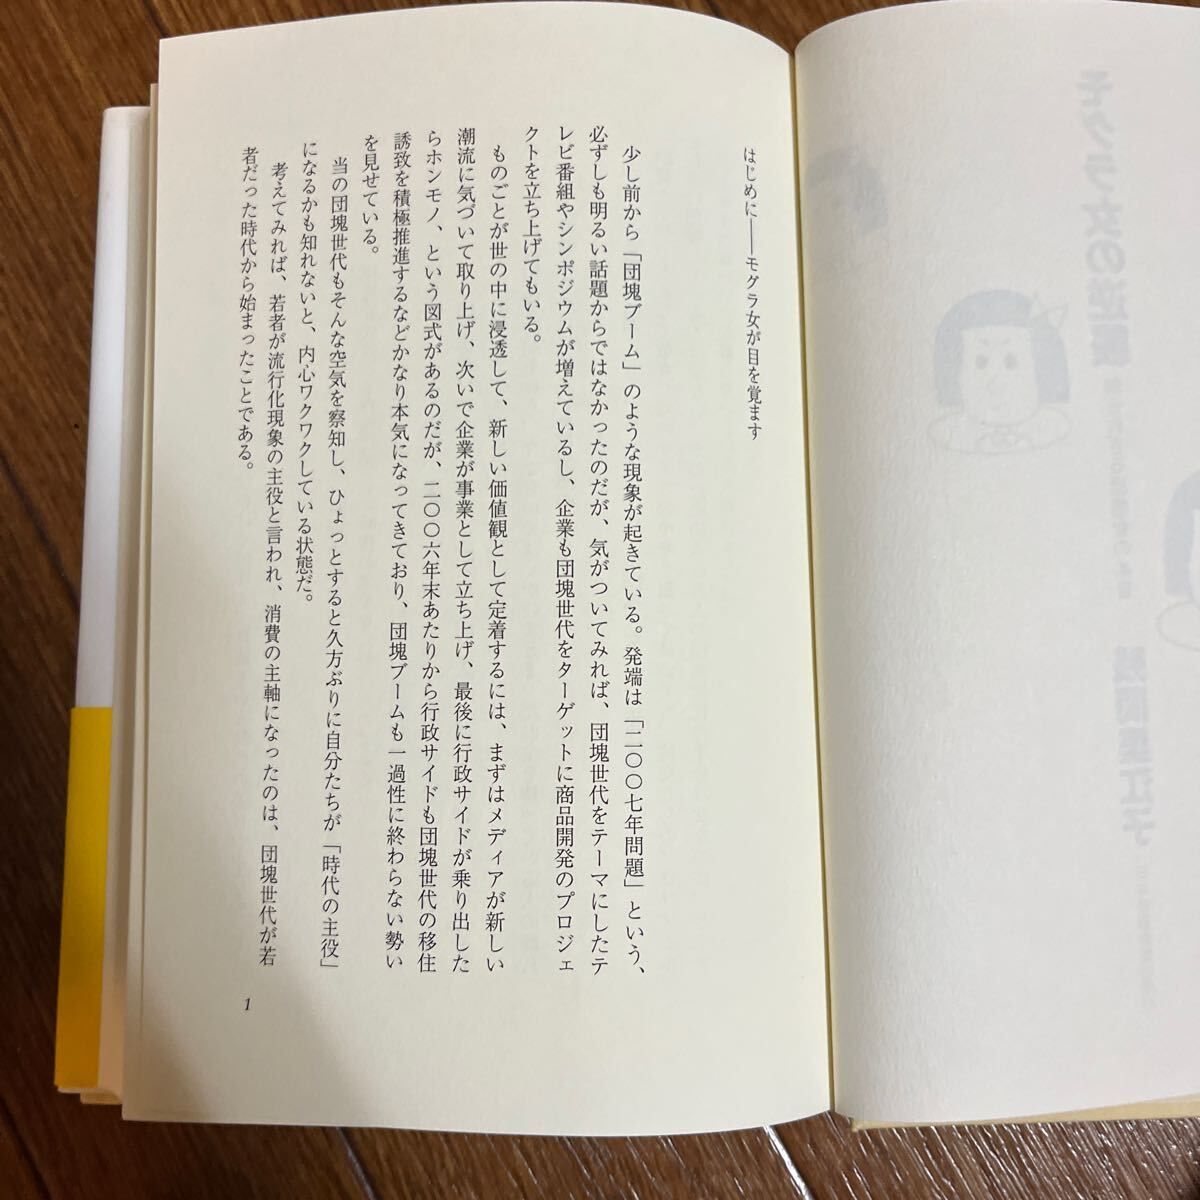 はじめに――モグラ女が目を覚ます
少し前から「団塊ブーム」のような現象が起きている。発端は「二〇〇七年問題」という、
必ずしも明るい話題からではなかったのだが、気がついてみれば、団塊世代をテーマにしたテ
レビ番組やシンポジウムが増えているし、企業も団塊世代をターゲットに商品開発のプロジェ
クトを立ち上げてもいる。
ものごとが世の中に浸透して、新しい価値観として定着するには、まずはメディアが新しい
潮流に気づいて取り上げ、次いで企業が事業として立ち上げ、最後に行政サイドが乗り出した
らホンモノ、という図式があるのだが、二〇〇六年末あたりから行政サイドも団塊世代の移住
誘致を積極推進するなどかなり本気になってきており、団塊ブームも一過性に終わらない勢い
を見せている。
当の団塊世代もそんな空気を察知し、ひょっとすると久方ぶりに自分たちが「時代の主役」
になるかも知れないと、内心ワクワクしている状態だ。
考えてみれば、若者が流行化現象の主役と言われ、消費の主軸になったのは、団塊世代が若
者だった時代から始まったことである。
1